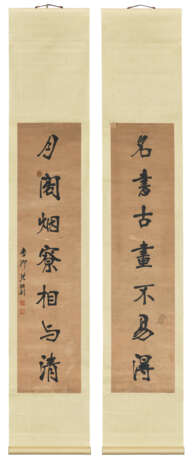 名書古畫不易得
月閣烟寮相与清